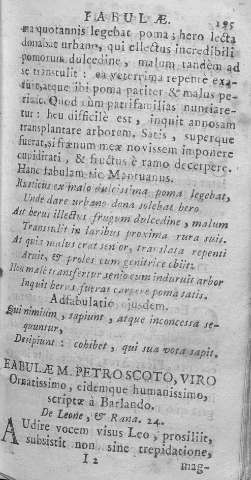 FABULÆ. 195
ea quotannis legebat poma; hero lecta
donabat urbano, qui ellectus incredibili
pomorum dulcedine, malum tandem ad
se transtulit: ea veterrima repente exa-
ruit, atque ibi poma pariter & malus pe-
riit. Quod cum patrifamilias nunciare-
tur: heu difficile est, inquit annosam
transplantare arborem. Satis, superque
fuerat, si frænum meæ novissem imponere
cupiditati, & fructus è ramo decerpere.
Hanc fabulam sic Mantuanus.
Rusticus ex malo dulcissima poma legebat,
Unde dare urbano dona solebat hero
Ast herus illectus frugum dulcedine, malum
Transtulit in laribus proxima rura suis.
At quia malus erat senior, translata repentè
Aruit, & proles cum genitrice obiit.
Heu male transfertur senio cum induruit arbor
Inquit herus, fuerat carpere poma satis.
Adfabulatio ejusdem.
Qui nimium, sapiunt, atque inconcessa se-
quuntur,
Desipiunt: cohibet, qui sua vota sapit.
FABULÆ M. PETRO SCOTO, VIRO
Ornatissimo, eidemque humanissimo,
scriptæ à Barlando.
De Leone, & Rana. 24.
AUdire vocem visus Leo, prosiliit,
subsistit non sine trepidatione,
I 2 mag-